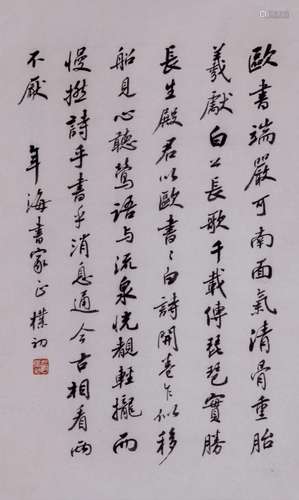 歐書端嚴可南面氣清骨重胎
羲獻白公長歌千載傳琵琶實勝
長生殿君以歐書〻白詩開卷乍似移
船見心聽鶯語与流泉恍覩輕攏而
慢撚詩乎書乎消息通今古相看兩
不厭
年海書家正 樸初